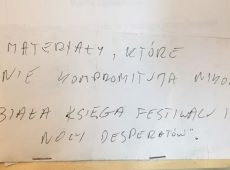 MATERIAŁY, KTÓRE
NIE KOMPROMITUJĄ NIKOGO
BIAŁA KSIĘGA FESTIWALU I
NOCY DESPERATÓW".